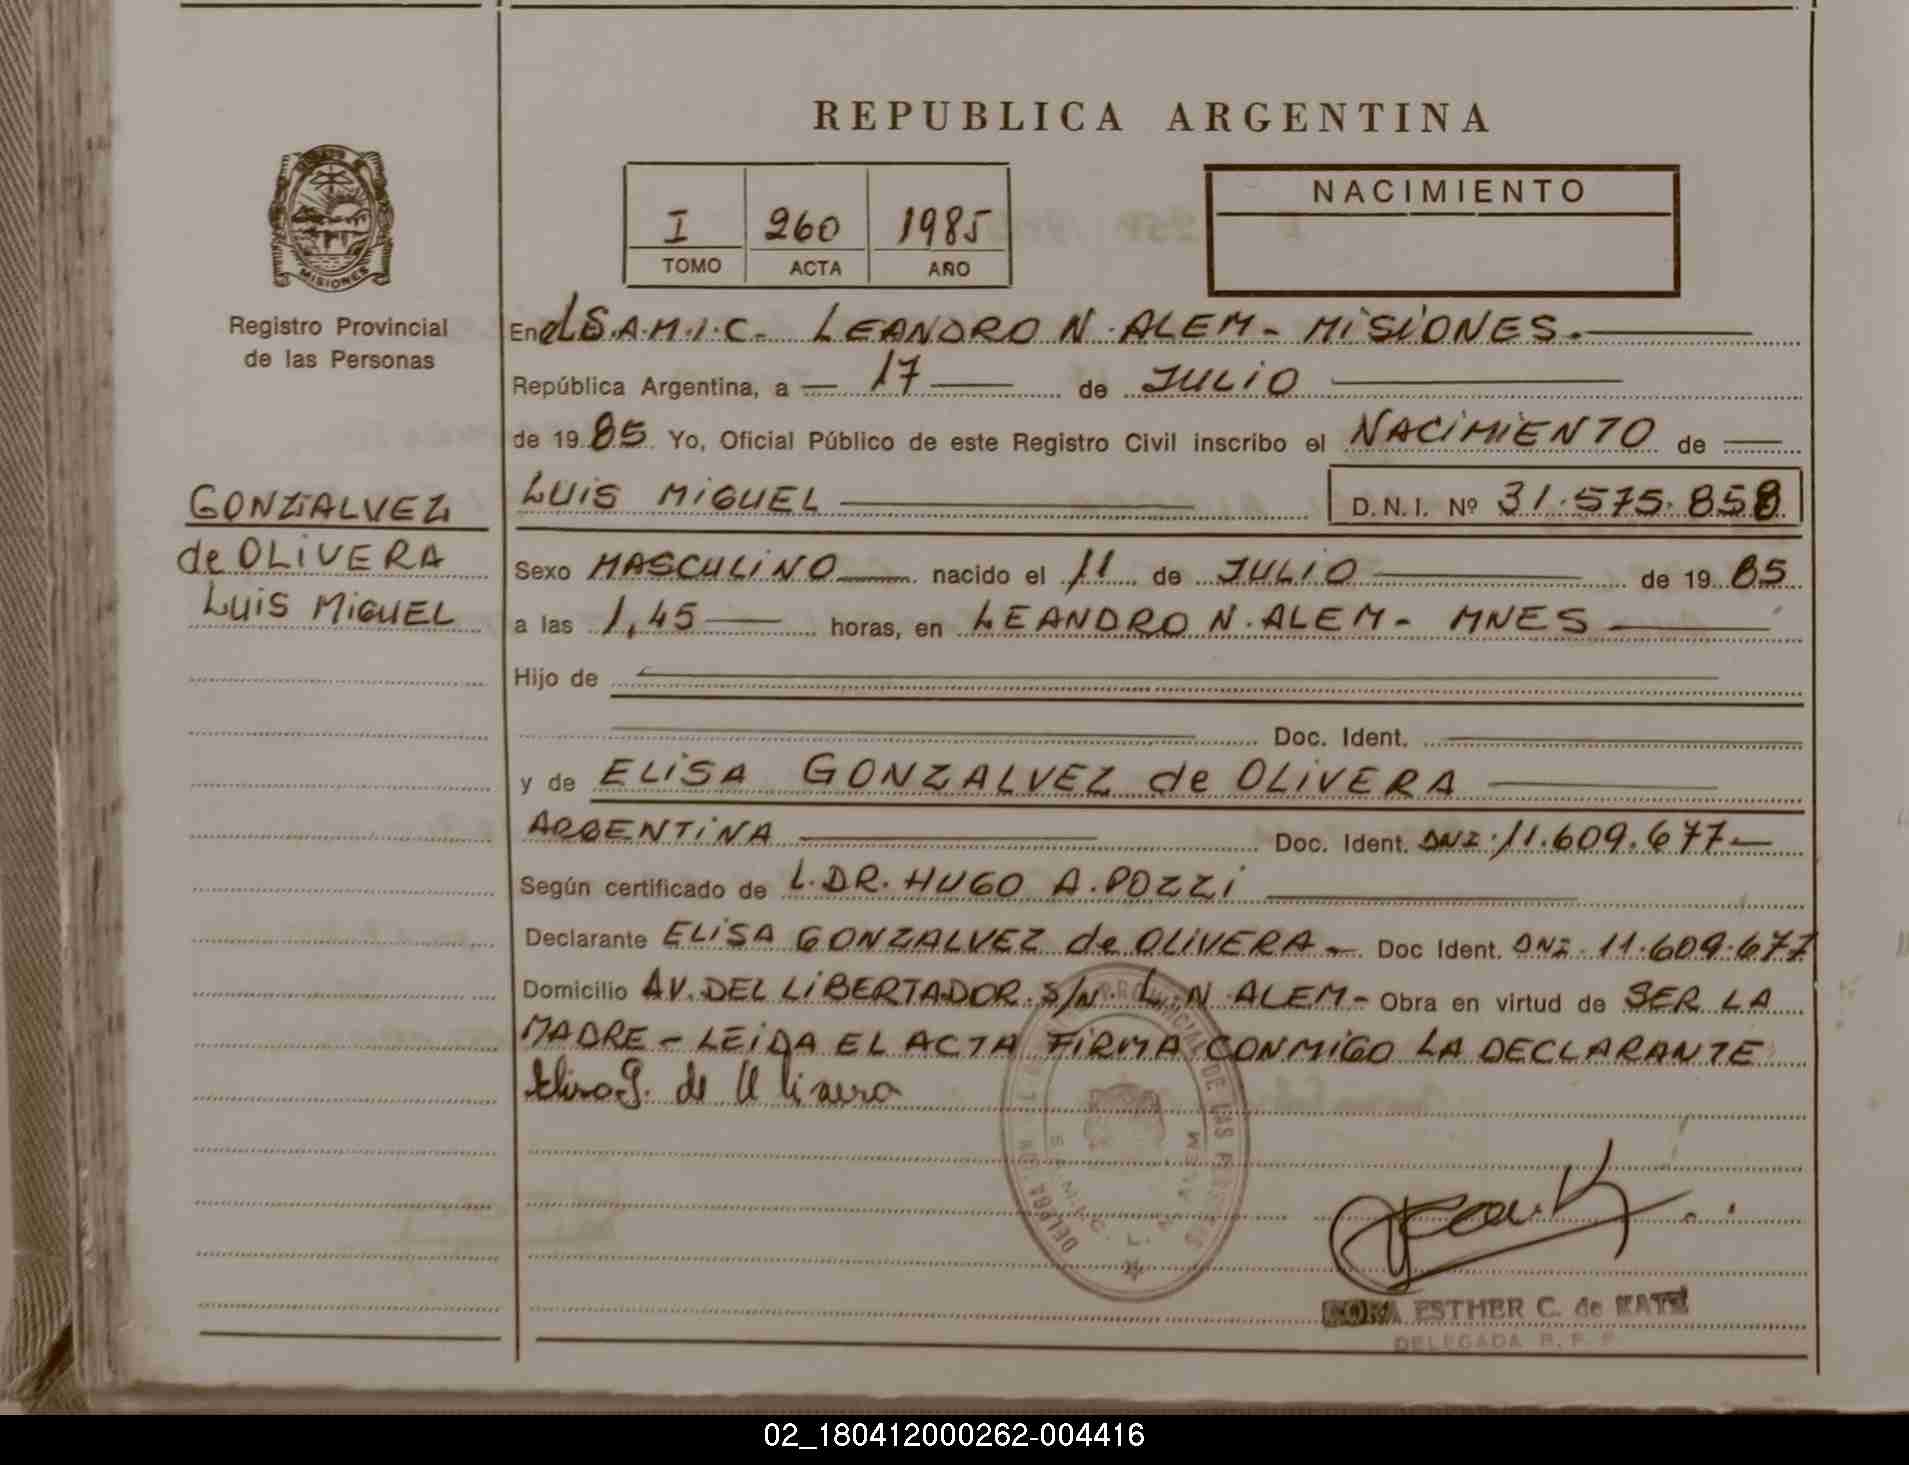 REPUBLICA ARGENTINA
NACIMIENTO
I 260 1985
TOMO ACTA AÑO
MISIONES
Registro Provincial
de las Personas
En el S.A.M.I.C. LEANDRO N. ALEM - MISIONES.
República Argentina, a 17 de JULIO
de 19 85 Yo, Oficial Público de este Registro Civil inscribo el NACIMIENTO de
LUIS MIGUEL D.N.I. Nº 31.575.858
GONZALVEZ
de OLIVERA
LUIS MIGUEL
Sexo MASCULINO nacido el 11 de JULIO de 19 85
a las 1,45 horas, en LEANDRO N. ALEM - MNES
Hijo de
Doc. Ident.
y de ELISA GONZALVEZ de OLIVERA
ARGENTINA Doc. Ident. DNI. 11.609.677
Según certificado de L. DR. HUGO A. POZZI
Declarante ELISA GONZALVEZ de OLIVERA Doc Ident. DNI. 11.609.677
Domicilio AV. DEL LIBERTADOR S/N. L. N ALEM - Obra en virtud de SER LA
MADRE - LEIDA EL ACTA FIRMA CONMIGO LA DECLARANTE
Elisa G. de Olivera
S.A.M.I.C. L. N. ALEM
ESTHER C. de KATZ
DELEGADA R. P. P.
02_180412000262-004416